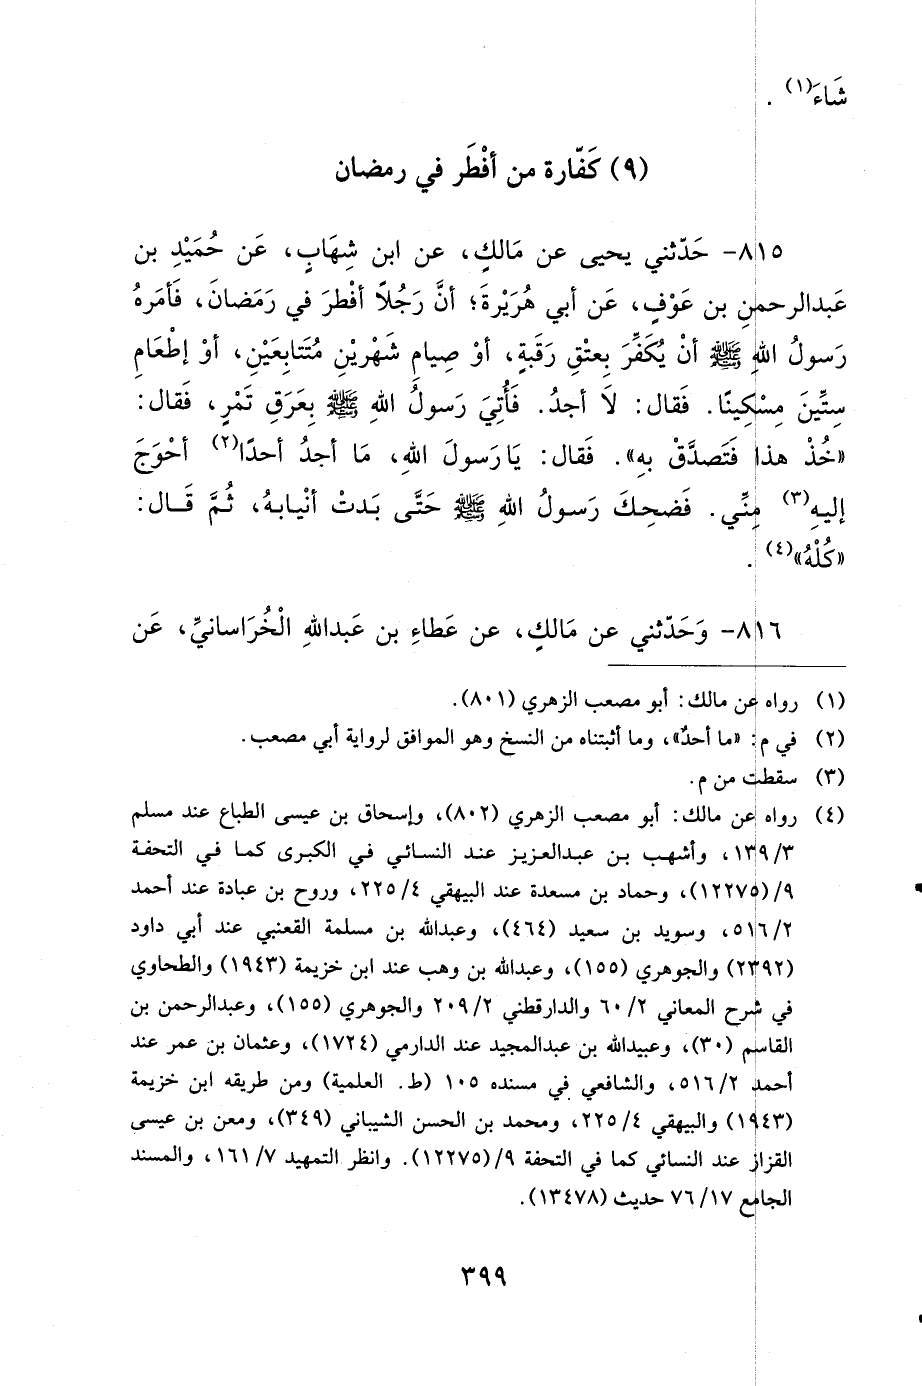 شَاءَ(١) .
(٩) كَفّارة من أفْطَر في رمضان
٨١٥- حَدّثني يحيى عن مَالكٍ، عن ابن شِهَابٍ، عَن حُمَيْدِ بن
عَبدالرحمنِ بن عَوْفٍ، عَن أبي هُرَيْرةَ؛ أنَّ رَجُلاً أفْطرَ في رَمَضانَ، فَأمَرهُ
رَسولُ اللهِ ﷺ أنْ يُكَفِّرَ بِعتْقِ رَقَبةٍ، أوْ صِيامِ شَهْريْنِ مُتَتابِعَيْنِ، أوْ إطْعَامِ
سِتِّينَ مِسْكِينًا. فَقال: لاَ أجدُ. فَأُتِيَ رَسولُ اللهِ ﷺ بِعَرَقِ تَمْرٍ، فَقال:
«خُذْ هذا فَتَصدَّقْ بهِ». فَقال: يَا رَسولَ اللهِ، مَا أجدُ أحدًا(٢) أحْوَجَ
إليهِ(٣) مِنِّي. فَضحِكَ رَسولُ اللهِ ﷺ حَتَّى بَدتْ أنْيابهُ، ثُمَّ قَـال:
«كُلْهُ»(٤) .
٨١٦- وَحَدّثني عن مَالكٍ، عن عَطاءِ بن عَبداللهِ الْخُرَاسانيِّ، عَن
(١) رواه عن مالك: أبو مصعب الزهري (٨٠١).
(٢) في م: «ما أحدٌ»، وما أثبتناه من النسخ وهو الموافق لرواية أبي مصعب.
(٣) سقطت من م.
(٤) رواه عن مالك: أبو مصعب الزهري (٨٠٢)، وإسحاق بن عيسى الطباع عند مسلم
٣/ ١٣٩، وأشهب بن عبدالعزيز عند النسائي في الكبرى كما في التحفة
٩/ (١٢٢٧٥)، وحماد بن مسعدة عند البيهقي ٤/ ٢٢٥، وروح بن عبادة عند أحمد
٢/ ٥١٦، وسويد بن سعيد (٤٦٤)، وعبدالله بن مسلمة القعنبي عند أبي داود
(٢٣٩٢) والجوهري (١٥٥)، وعبدالله بن وهب عند ابن خزيمة (١٩٤٣) والطحاوي
في شرح المعاني ٢/ ٦٠ والدارقطني ٢/ ٢٠٩ والجوهري (١٥٥)، وعبدالرحمن بن
القاسم (٣٠)، وعبيدالله بن عبدالمجيد عند الدارمي (١٧٢٤)، وعثمان بن عمر عند
أحمد ٢/ ٥١٦، والشافعي في مسنده ١٠٥ (ط. العلمية) ومن طريقه ابن خزيمة
(١٩٤٣) والبيهقي ٤/ ٢٢٥، ومحمد بن الحسن الشيباني (٣٤٩)، ومعن بن عيسى
القزاز عند النسائي كما في التحفة ٩/ (١٢٢٧٥). وانظر التمهيد ٧/ ١٦١، والمسند
الجامع ١٧/ ٧٦ حديث (١٣٤٧٨).
٣٩٩